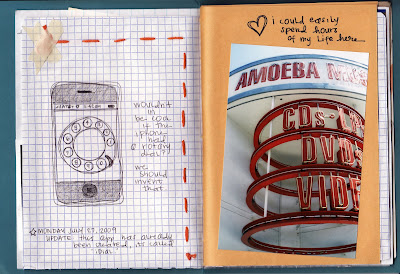 wouldnt
it
be cool
if the
iphone
had
a rotary
dial?
we
should
invent
that.
MONDAY JULY 27, 2009
UPDATE this app has already
been created, it's called
iDial.
i could easily
spend hours
of my life here
AMOEBA
CDs
DVDs
VIDE